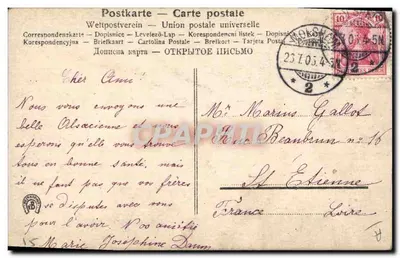 Postkarte - Carte postale
Weltpostverein - Union postale universelle
Correspondenzkarte - Dopisnice - Levelező-Lap - Korespondencni listek - Dopisnica
Korespondencyjna - Briefkaart - Cartolina Postale - Brefkort - Tarjeta Postal
Дописна карта - ОТКРЫТОЕ ПИСЬМО
10
25.1.05.4-5N
2
Cher Ami
Nous vous envoyons une
belle Alsacienne et vous
esperons qu'elle vous trouve
tous en bonne santé, mais
il ne faut pas que vos frères
se disputes avec vous
pour l'avoir. Nos amitiés
Marie Joséphine Damm
Mr Marius Gallot
Rue Beaubrun no 16
St Etiénne
France Loire
CPARAMA